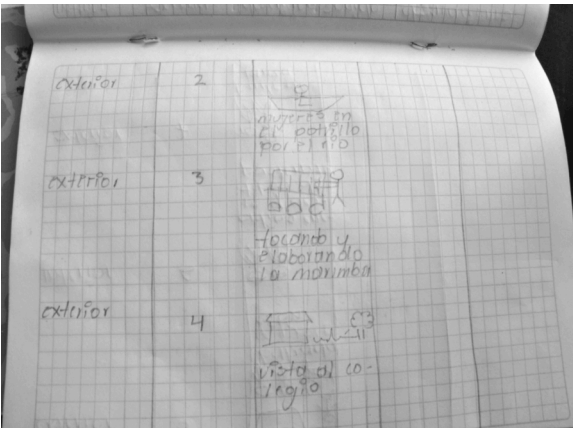 exterior
2
mujeres en
el potrillo
por el rio
exterior
3
tocando y
elaborando
la marimba
exterior
4
vista al co-
legio